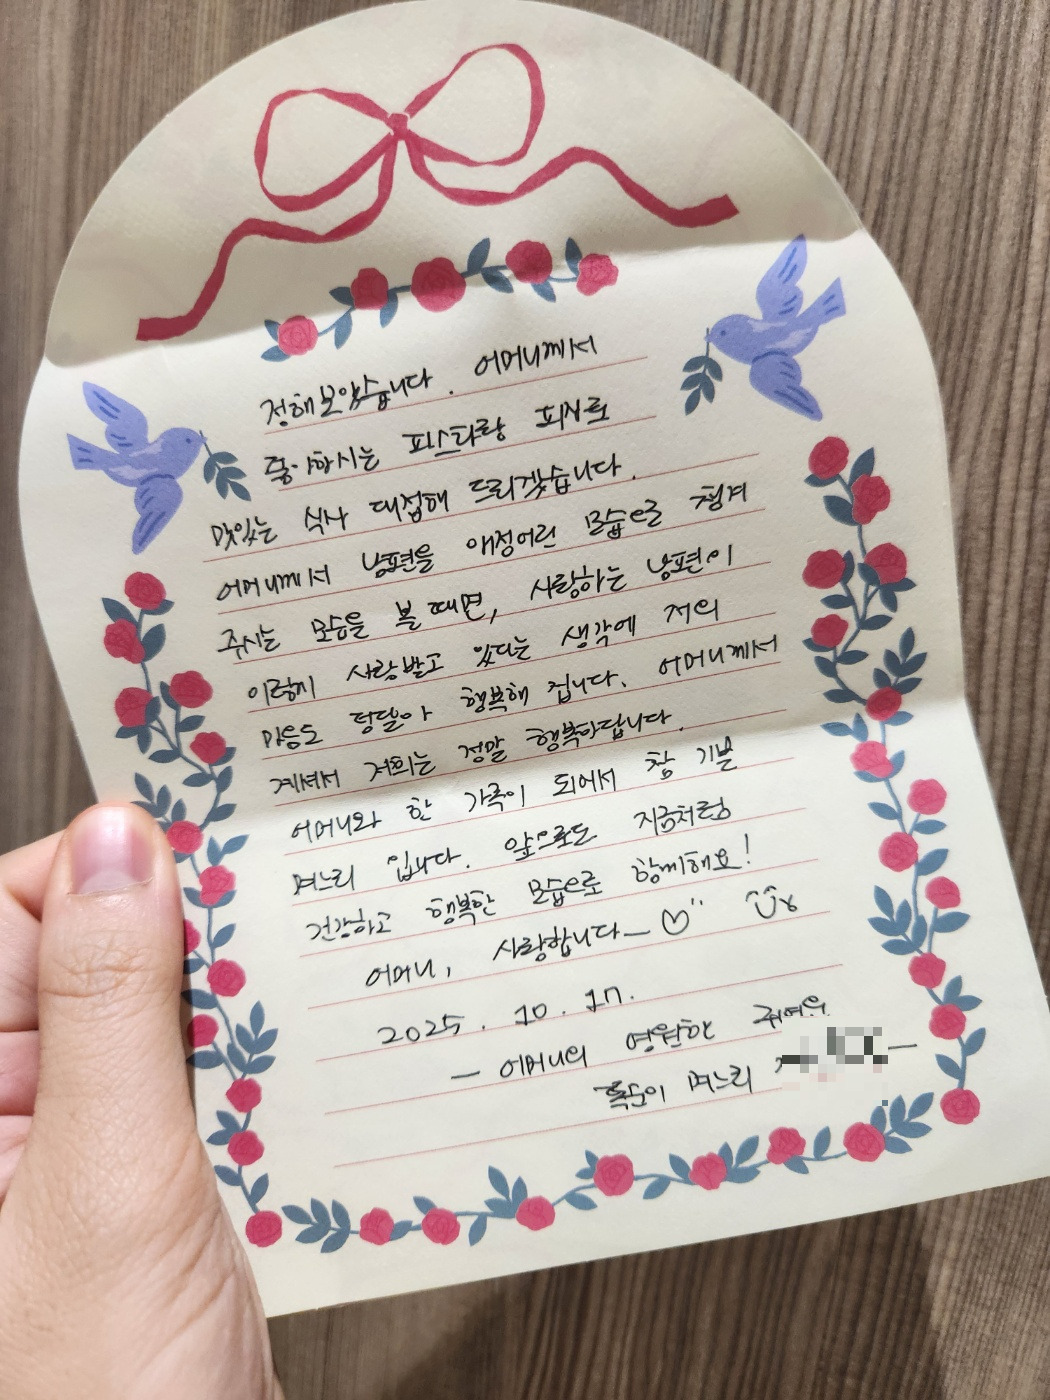 정해보았습니다. 어머니께서
좋아하시는 파스타랑 피자로
맛있는 식사 대접해 드리겠습니다.
어머니께서 남편을 애정어린 모습으로 챙겨
주시는 모습을 볼 때면, 사랑하는 남편이
이렇게 사랑받고 있다는 생각에 저의
마음도 덩달아 행복해 집니다. 어머니께서
계셔서 저희는 정말 행복하답니다.
어머니와 한 가족이 되어서 참 기쁜
며느리 입니다. 앞으로도 지금처럼
건강하고 행복한 모습으로 함께해요!
어머니, 사랑합니다—♡
2025. 10. 17.
— 어머니의 영원한 귀여운
며느리 —